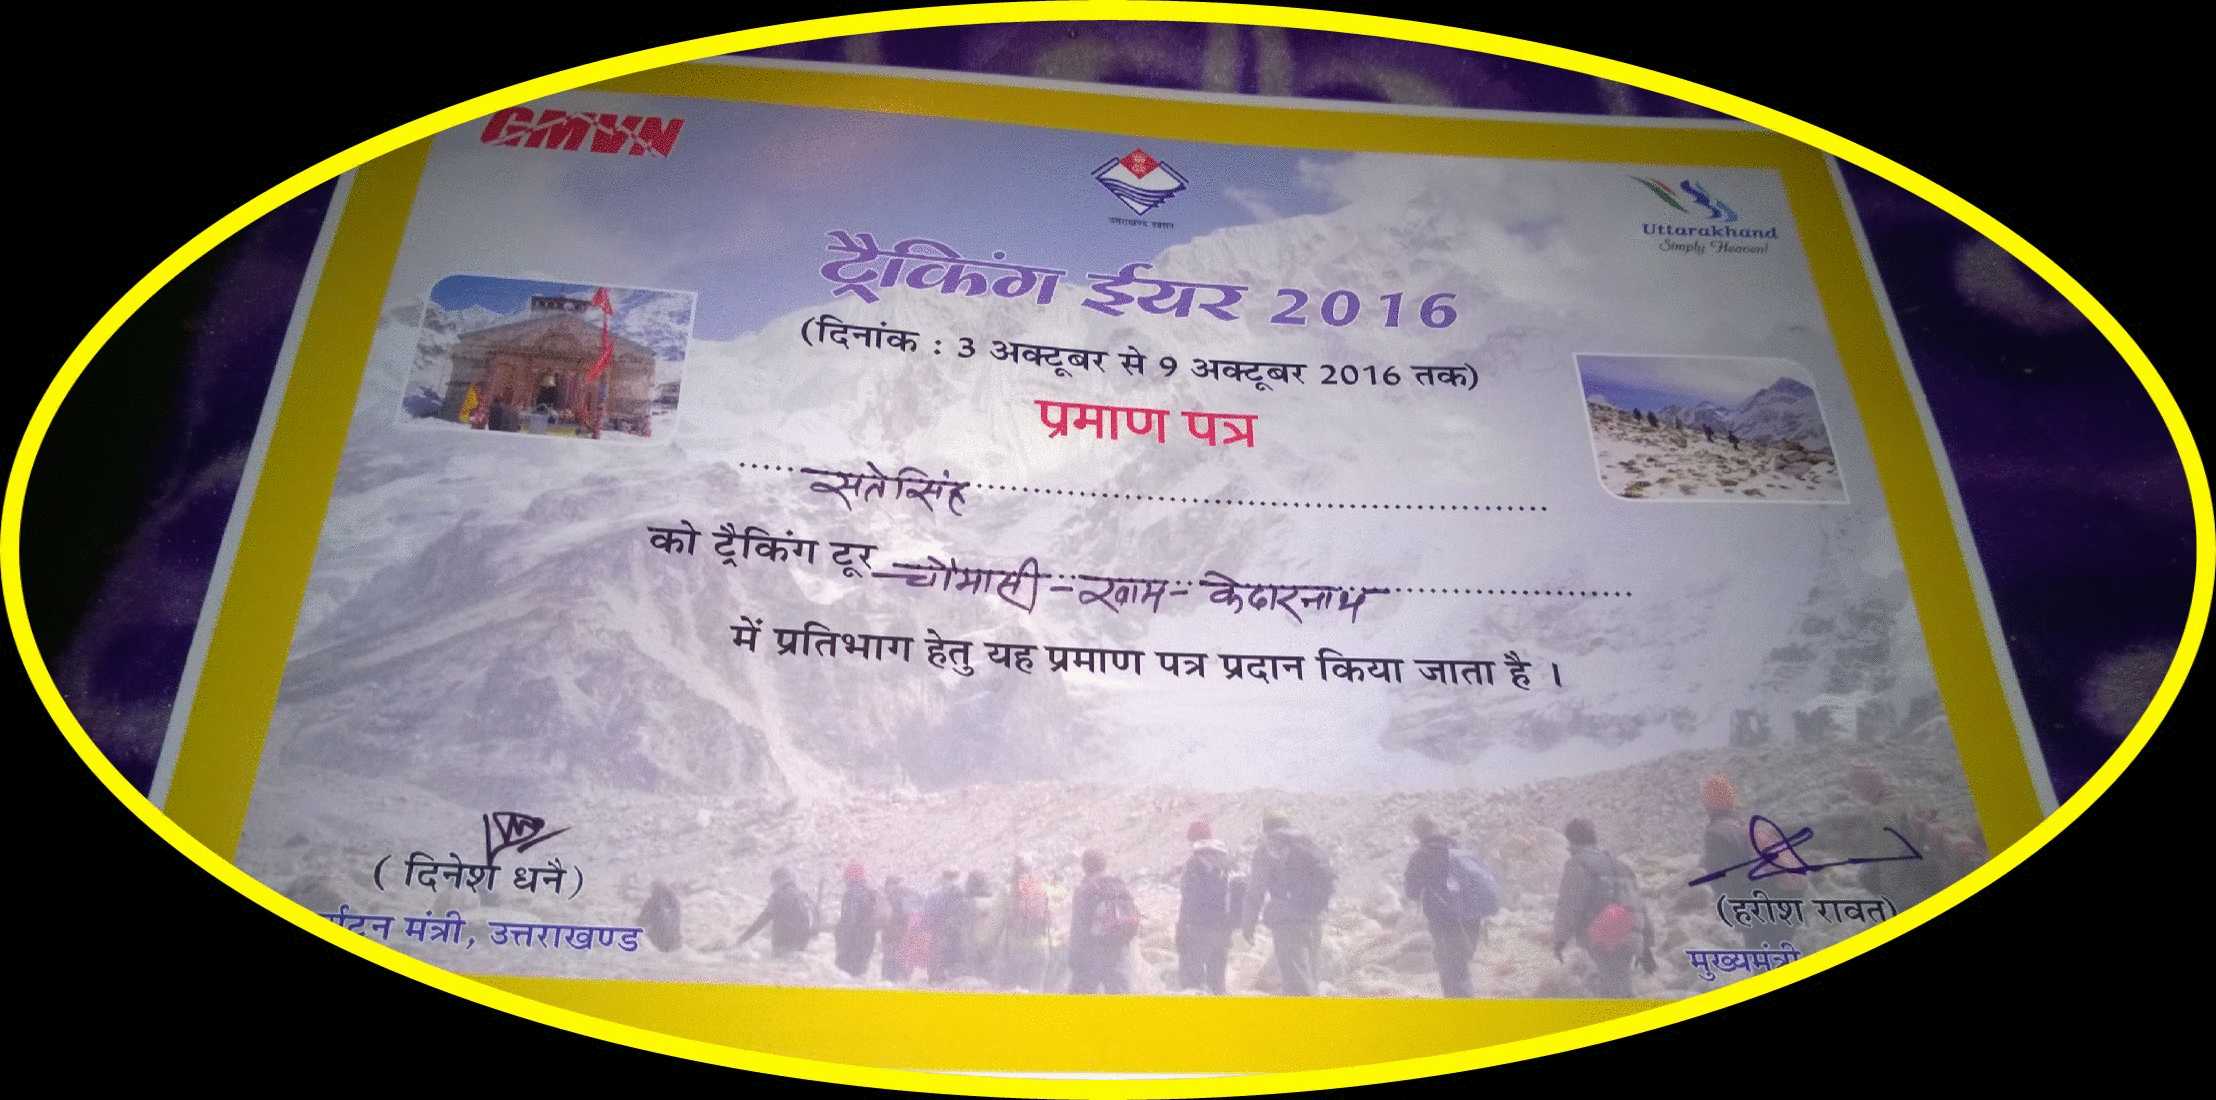 GMVN
उत्तराखण्ड शासन
Uttarakhand
Simply Heaven!
ट्रैकिंग ईयर 2016
(दिनांक : 3 अक्टूबर से 9 अक्टूबर 2016 तक)
प्रमाण पत्र
सतेसिंह
को ट्रैकिंग टूर चौमासी - खाम - केदारनाथ
में प्रतिभाग हेतु यह प्रमाण पत्र प्रदान किया जाता है ।
( दिनेश धनै)
र्यटन मंत्री, उत्तराखण्ड
(हरीश रावत)
मुख्यमंत्री